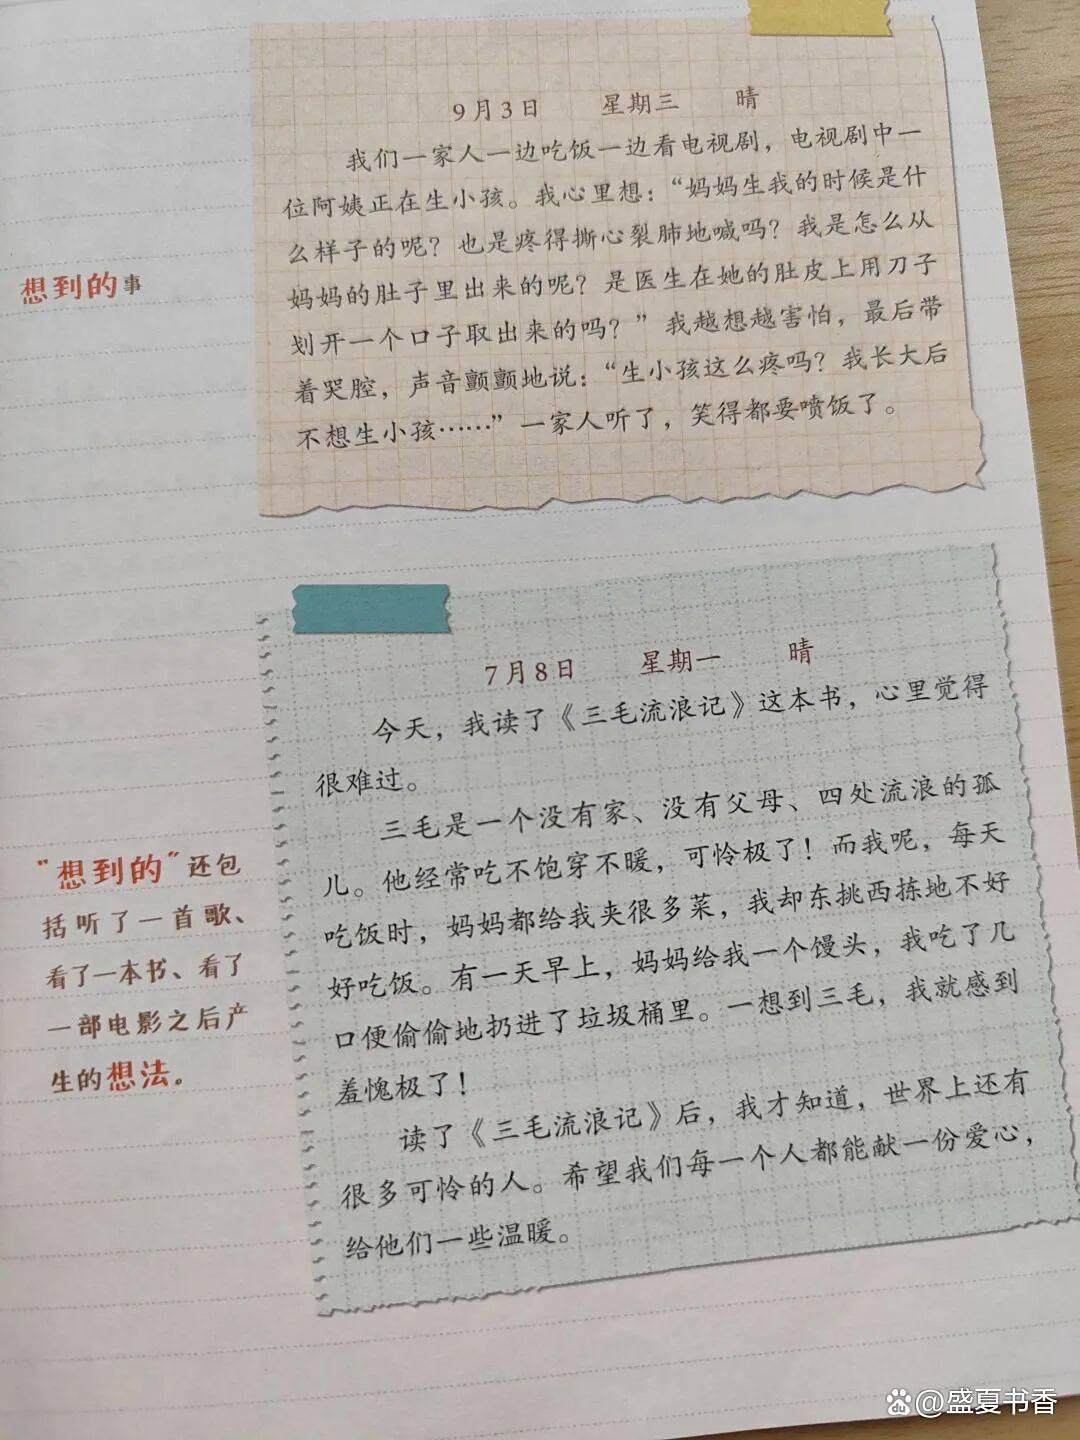 9月3日 星期三 晴
我们一家人一边吃饭一边看电视剧，电视剧中一
位阿姨正在生小孩。我心里想：“妈妈生我的时候是什
么样子的呢？也是疼得撕心裂肺地喊吗？我是怎么从
妈妈的肚子里出来的呢？是医生在她的肚皮上用刀子
划开一个口子取出来的吗？”我越想越害怕，最后带
着哭腔，声音颤颤地说：“生小孩这么疼吗？我长大后
不想生小孩……”一家人听了，笑得都要喷饭了。
想到的事
7月8日 星期一 晴
今天，我读了《三毛流浪记》这本书，心里觉得
很难过。
三毛是一个没有家、没有父母、四处流浪的孤
儿。他经常吃不饱穿不暖，可怜极了！而我呢，每天
吃饭时，妈妈都给我夹很多菜，我却东挑西拣地不好
好吃饭。有一天早上，妈妈给我一个馒头，我吃了几
口便偷偷地扔进了垃圾桶里。一想到三毛，我就感到
羞愧极了！
读了《三毛流浪记》后，我才知道，世界上还有
很多可怜的人。希望我们每一个人都能献一份爱心，
给他们一些温暖。
“想到的”还包
括听了一首歌、
看了一本书、看了
一部电影之后产
生的想法。
@盛夏书香